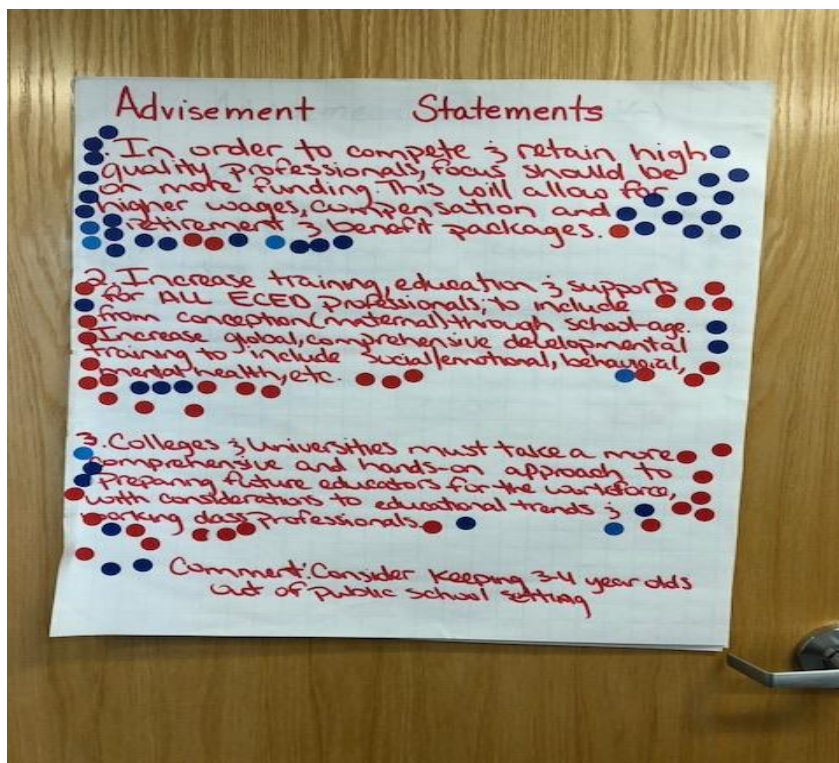 Advisement Statements
. In order to compete & retain high
quality professionals, focus should be
on more funding. This will allow for
higher wages, compensation and
retirement & benefit packages.
2. Increase training, education & supports
for ALL ECED professionals; to include
from conception (maternal) through school-age.
Increase global, comprehensive developmental
training to include social/emotional, behavioral,
mental health, etc.
3. Colleges & Universities must take a more
comprehensive and hands-on approach to
preparing future educators for the workforce,
with considerations to educational trends &
working class professionals.
Comment: Consider keeping 3-4 year olds
out of public school setting